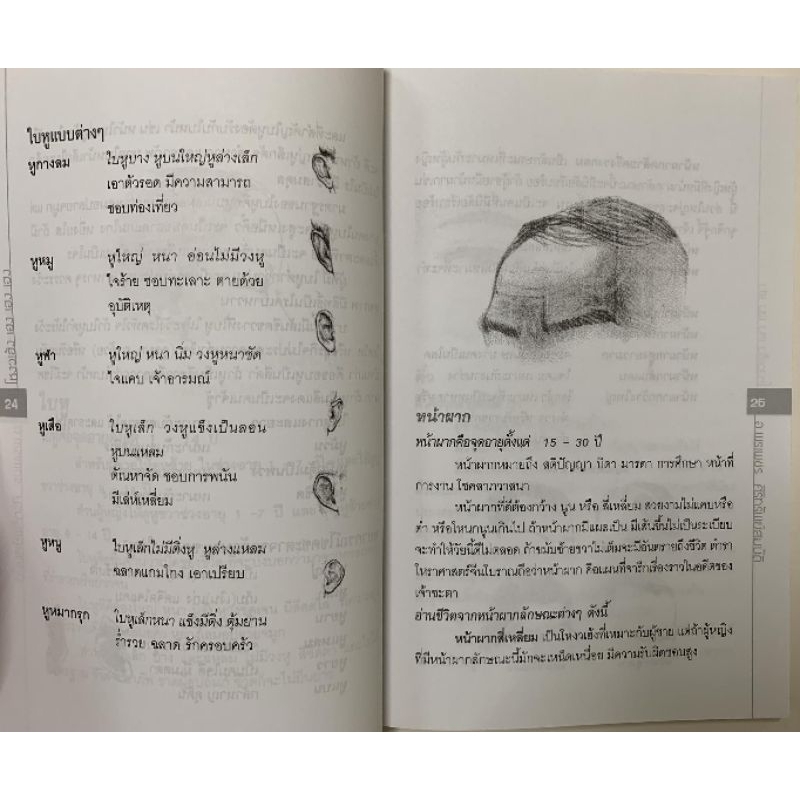 ใบหูแบบต่างๆ
หูกางลม ใบหูบาง หูบนใหญ่หูล่างเล็ก
เอาตัวรอด มีความสามารถ
ชอบท่องเที่ยว
หูหมู หูใหญ่ หนา อ่อนไม่มีวงหู
ใจร้าย ชอบทะเลาะ ตายด้วย
อุบัติเหตุ
หูฬา หูใหญ่ หนา นิ่ม วงหูหนาชัด
ใจแคบ เจ้าอารมณ์
24
หูเสือ ใบหูเล็ก วงหูแข็งเป็นลอน
หูบนแหลม
ตัณหาจัด ชอบการพนัน
มีเล่ห์เหลี่ยม
หูหนู ใบหูเล็กไม่มีติ่งหู หูล่างแหลม
ฉลาดแกมโกง เอาเปรียบ
หูหมากรุก ใบหูเล็กหนา แข็งมีติ่ง ตุ้มยาน
ร่ำรวย ฉลาด รักครอบครัว
25
หน้าผาก
หน้าผากคือจุดอายุตั้งแต่ 15 - 30 ปี
หน้าผากหมายถึง สติปัญญา บิดา มารดา การศึกษา หน้าที่
การงาน โชคลาภวาสนา
หน้าผากที่ดีต้องกว้าง นูน หรือ สี่เหลี่ยม สวยงามไม่แคบหรือ
ต่ำ หรือโหนกนูนเกินไป ถ้าหน้าผากมีแผลเป็น มีเส้นขึ้นไม่เป็นระเบียบ
จะทำให้วัยนี้ดีไม่ตลอด ถ้าขมับซ้ายขวาไม่เต็มจะมีอันตรายถึงชีวิต ตำรา
โหราศาสตร์จีนโบราณถือว่าหน้าผาก คือแผนที่จารึกเรื่องราวในอดีตของ
เจ้าชะตา
อ่านชีวิตจากหน้าผากลักษณะต่างๆ ดังนี้
หน้าผากสี่เหลี่ยม เป็นโหงวเฮ้งที่เหมาะกับผู้ชาย แต่ถ้าผู้หญิง
ที่มีหน้าผากลักษณะนี้มักจะเหน็ดเหนื่อย มีความรับผิดชอบสูง